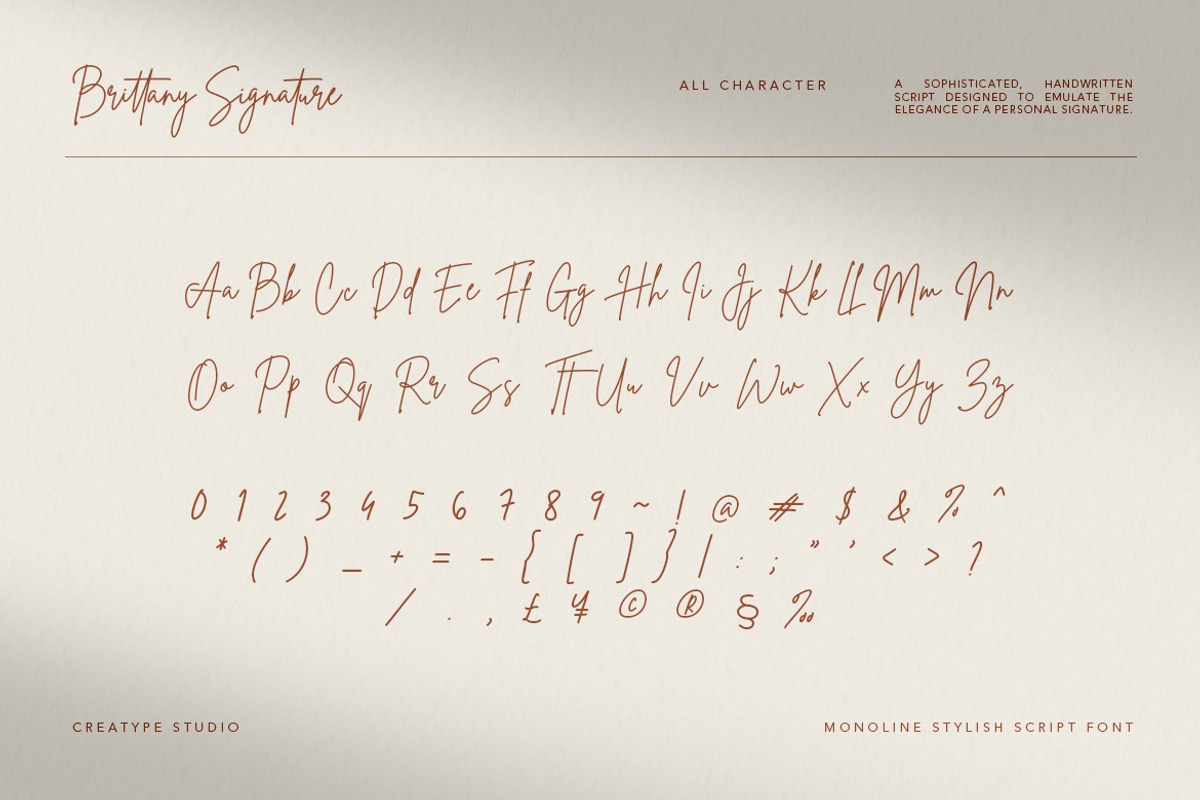 Brittany Signature
ALL CHARACTER
A SOPHISTICATED, HANDWRITTEN
SCRIPT DESIGNED TO EMULATE THE
ELEGANCE OF A PERSONAL SIGNATURE.
Aa Bb Cc Dd Ee Ff Gg Hh Ii Jj Kk Ll Mm Nn
Oo Pp Qq Rr Ss Tt Uu Vv Ww Xx Yy Zz
0 1 2 3 4 5 6 7 8 9 ~ ! @ # $ & % ^
* ( ) _ + = - { [ ] } | : ; ” ’ < > ?
/ . , £ ¥ © ® § ‰
CREATYPE STUDIO
MONOLINE STYLISH SCRIPT FONT